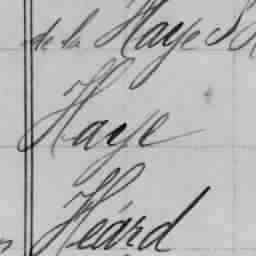 de la Haye
Haye
Heard